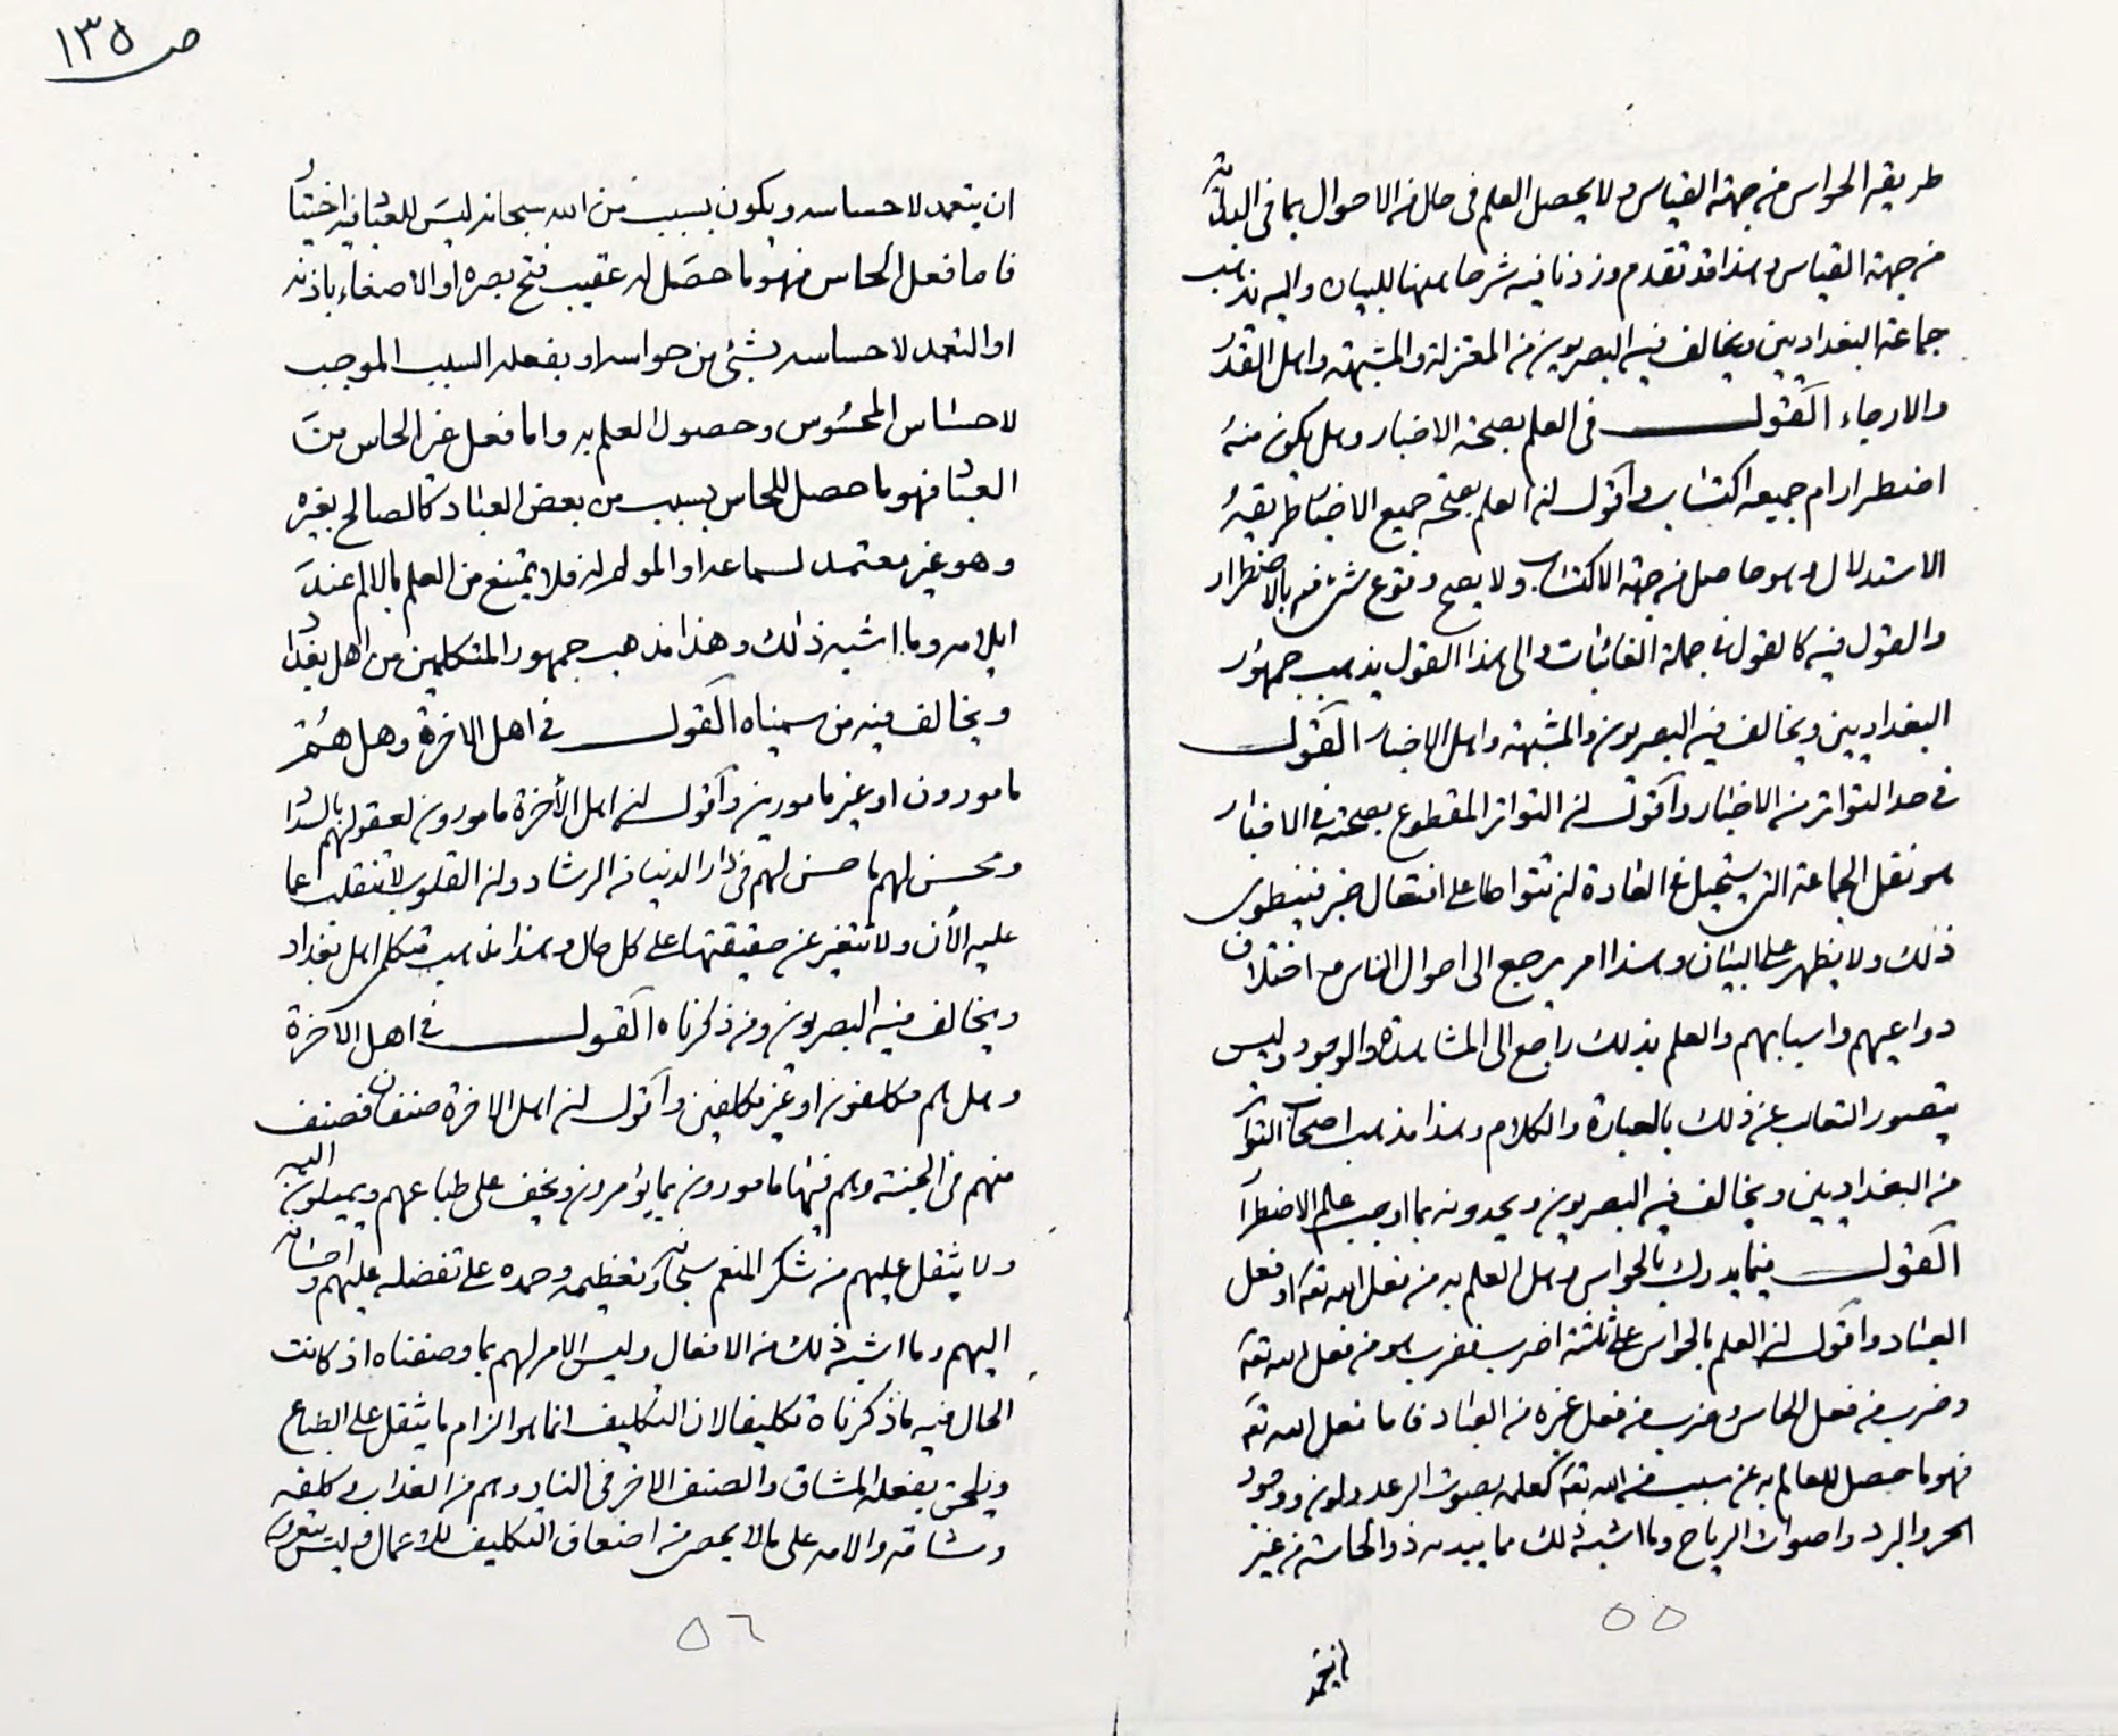 ص ١٣٥
طريقه الحواس من جهة القياس ولا يحصل العلم فى حال من الاحوال بما فى البداية
من جهة القياس وهذا قد تقدم وزدنا فيه شرحا ههنا للبيان واليه يذهب
جماعة البغداديين ويخالف فيه البصريون من المعتزلة والمشبهة واهل القدر
والارجاء القول فى العلم بصحة الاخبار وهل يكون منه
اضطرار ام جميعه اكتساب واقول ان العلم بصحة جميع الاخبار طريقه
الاستدلال وهو حاصل من جهة الاكتساب ولا يصح وقوع شئ منه بالاضطرار
والقول فيه كالقول فى جملة الغائبات والى هذا القول يذهب جمهور
البغداديين ويخالف فيه البصريون والمشبهة واهل الاخبار القول
فى حد التواتر من الاخبار واقول ان التواتر المقطوع بصحته فى الاخبار
هو نقل الجماعة التى يستحيل فى العادة ان تتواطا على افتعال خبر فينطوى
ذلك ولا يظهر على البيان وهذا امر يرجع الى احوال الناس مع اختلاف
دواعيهم واسبابهم والعلم بذلك راجع الى المشاهدة والوجود وليس
يتصور الغائب عن ذلك بالعبارة والكلام وهذا مذهب اصحاب التواتر
من البغداديين ويخالف فيه البصريون ويحدونه بما اوجب علم الاضطرار
القول فيما يدرك بالحواس وهل العلم به من فعل الله تعه او فعل
العباد واقول ان العلم بالحواس على ثلثة اضرب فضرب هو من فعل الله تعه
وضرب من فعل الحاس وضرب من فعل غيره من العباد فاما فعل الله تعه
فهو ما حصل للعالم به عن سبب من الله تعه كعلمه بصوت الرعد ولون ووجود
الحر والبرد واصوات الرياح وما اشبه ذلك مما يبده ذو الحاسة من غير
٥٥
ان يتعمد لاحساسه ويكون بسبب من الله سبحانه ليس للعباد فيه اختيار
فاما فعل الحاس فهو ما حصل له عقيب فتح بصره او الاصغاء باذنه
او التعمد لاحساسه بشئ من حواسه او بفعله السبب الموجب
لاحساس المحسوس وحصول العلم به واما فعل غير الحاس من
العباد فهو ما حصل للحاس بسبب من بعض العباد كالصالح بغيره
وهو غير معتمد لسماعه او المولم له فلا يمتنع من العلم بالالم عند
ايلامه وما اشبه ذلك وهذا مذهب جمهور المتكلمين من اهل بغداد
ويخالف فيه من سميناه القول فى اهل الاخرة وهل هم
مامورون او غير مامورين واقول ان اهل الأخرة مامورون بعقولهم بالسداد
ومحسن لهم ما حسن لهم فى دار الدنيا من الرشاد وان القلوب لا تنقلب عما
عليه الأن ولا تتغير عن حقيقتها على كل حال وهذا مذهب متكلمى اهل بغداد
ويخالف فيه البصريون ومن ذكرناه القول فى اهل الآخرة
وهل هم مكلفون او غير مكلفين واقول ان اهل الاخرة صنفان فصنف
منهم فى الجنة وهم فيها مامورون بما يؤمرون ويخف على طباعهم ويميلون اليه
ولا يثقل عليهم من شكر المنعم سبحانه وتعظيمه وحمده على تفضله عليهم واحسانه
اليهم وما اشبه ذلك من الافعال وليس الامر لهم بما وصفناه اذ كانت
الحال فيه ما ذكرناه تكليفا لان التكليف انما هو الزام ما يثقل على الطباع
ويلحق بفعله المشاق والصنف الاخر فى النار وهم من العذاب وكلفه
ومشاقه والامه على ما لا يحصى من اصناف التكليف للاعمال وليس يتعرون
٥٦